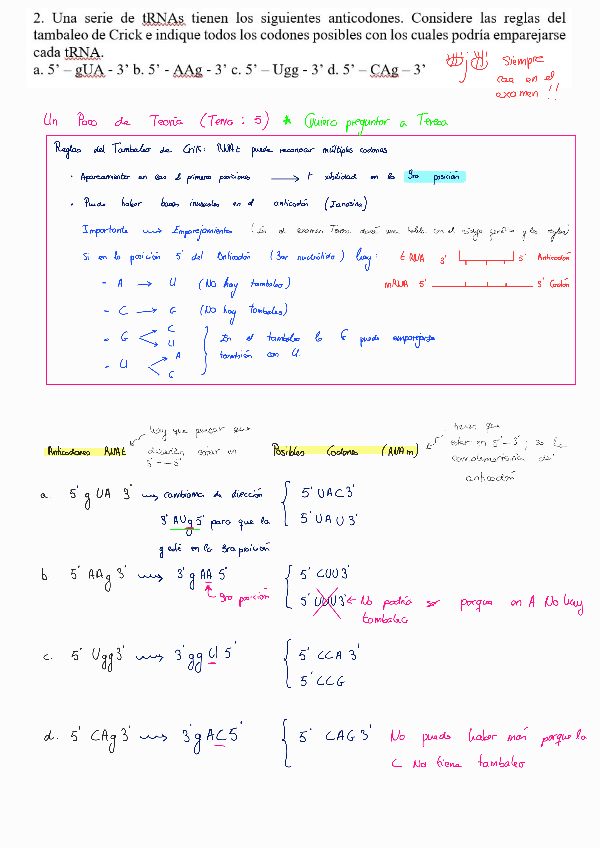 2. Una serie de tRNAs tienen los siguientes anticodones. Considere las reglas del
tambaleo de Crick e indique todos los codones posibles con los cuales podría emparejarse
cada tRNA.
a. 5’ – gUA - 3’ b. 5’ - AAg - 3’ c. 5’ – Ugg - 3’ d. 5’ – CAg – 3’
Siempre
cae en el
examen !!
Un Poco de Teoría (Tema : 5) * Quiero preguntar a Teresa
Reglas del Tambaleo de Crik: RNAt puede reconocer múltiples codones
• Apareamiento en las 2 primeras posiciones → xibilidad en la 3ra posición
• Puede haber bases inusuales en el anticodón (Ianosina)
Importante ⟿ Emparejamientos
Si en la posición 5' del Anticodón (3er nucleótido) hay:
tRNA 3' 5' Anticodón
mRNA 5' 3' Codón
- A → U (No hay tambaleo)
- C → G (No hay tambaleo)
- G < C U
- U < A G
En el tambaleo la G puede emparejarse
también con U.
Anticodones RNAt
hay que pensar que
5'-3'
Posibles Codones (RNAm)
tienen que
estar en 5'-3' ; so la
complementaria del
anticodón
a 5' g UA 3' ⟿ cambiamos de dirección
3' AUg 5' para que la
g esté en la 3ra posición
5' UAC 3'
5' UAU 3'
b 5' AAg 3' ⟿ 3' g AA 5'
3ra posición
5' CUU 3'
5' UUU 3' ← No podría ser porque en A No hay
tambaleo
c. 5' Ugg 3' ⟿ 3' gg U 5'
5' CCA 3'
5' CCG
d. 5' CAg 3' ⟿ 3' g AC 5'
5' CAG 3' No puede haber más porque la
C No tiene tambaleo